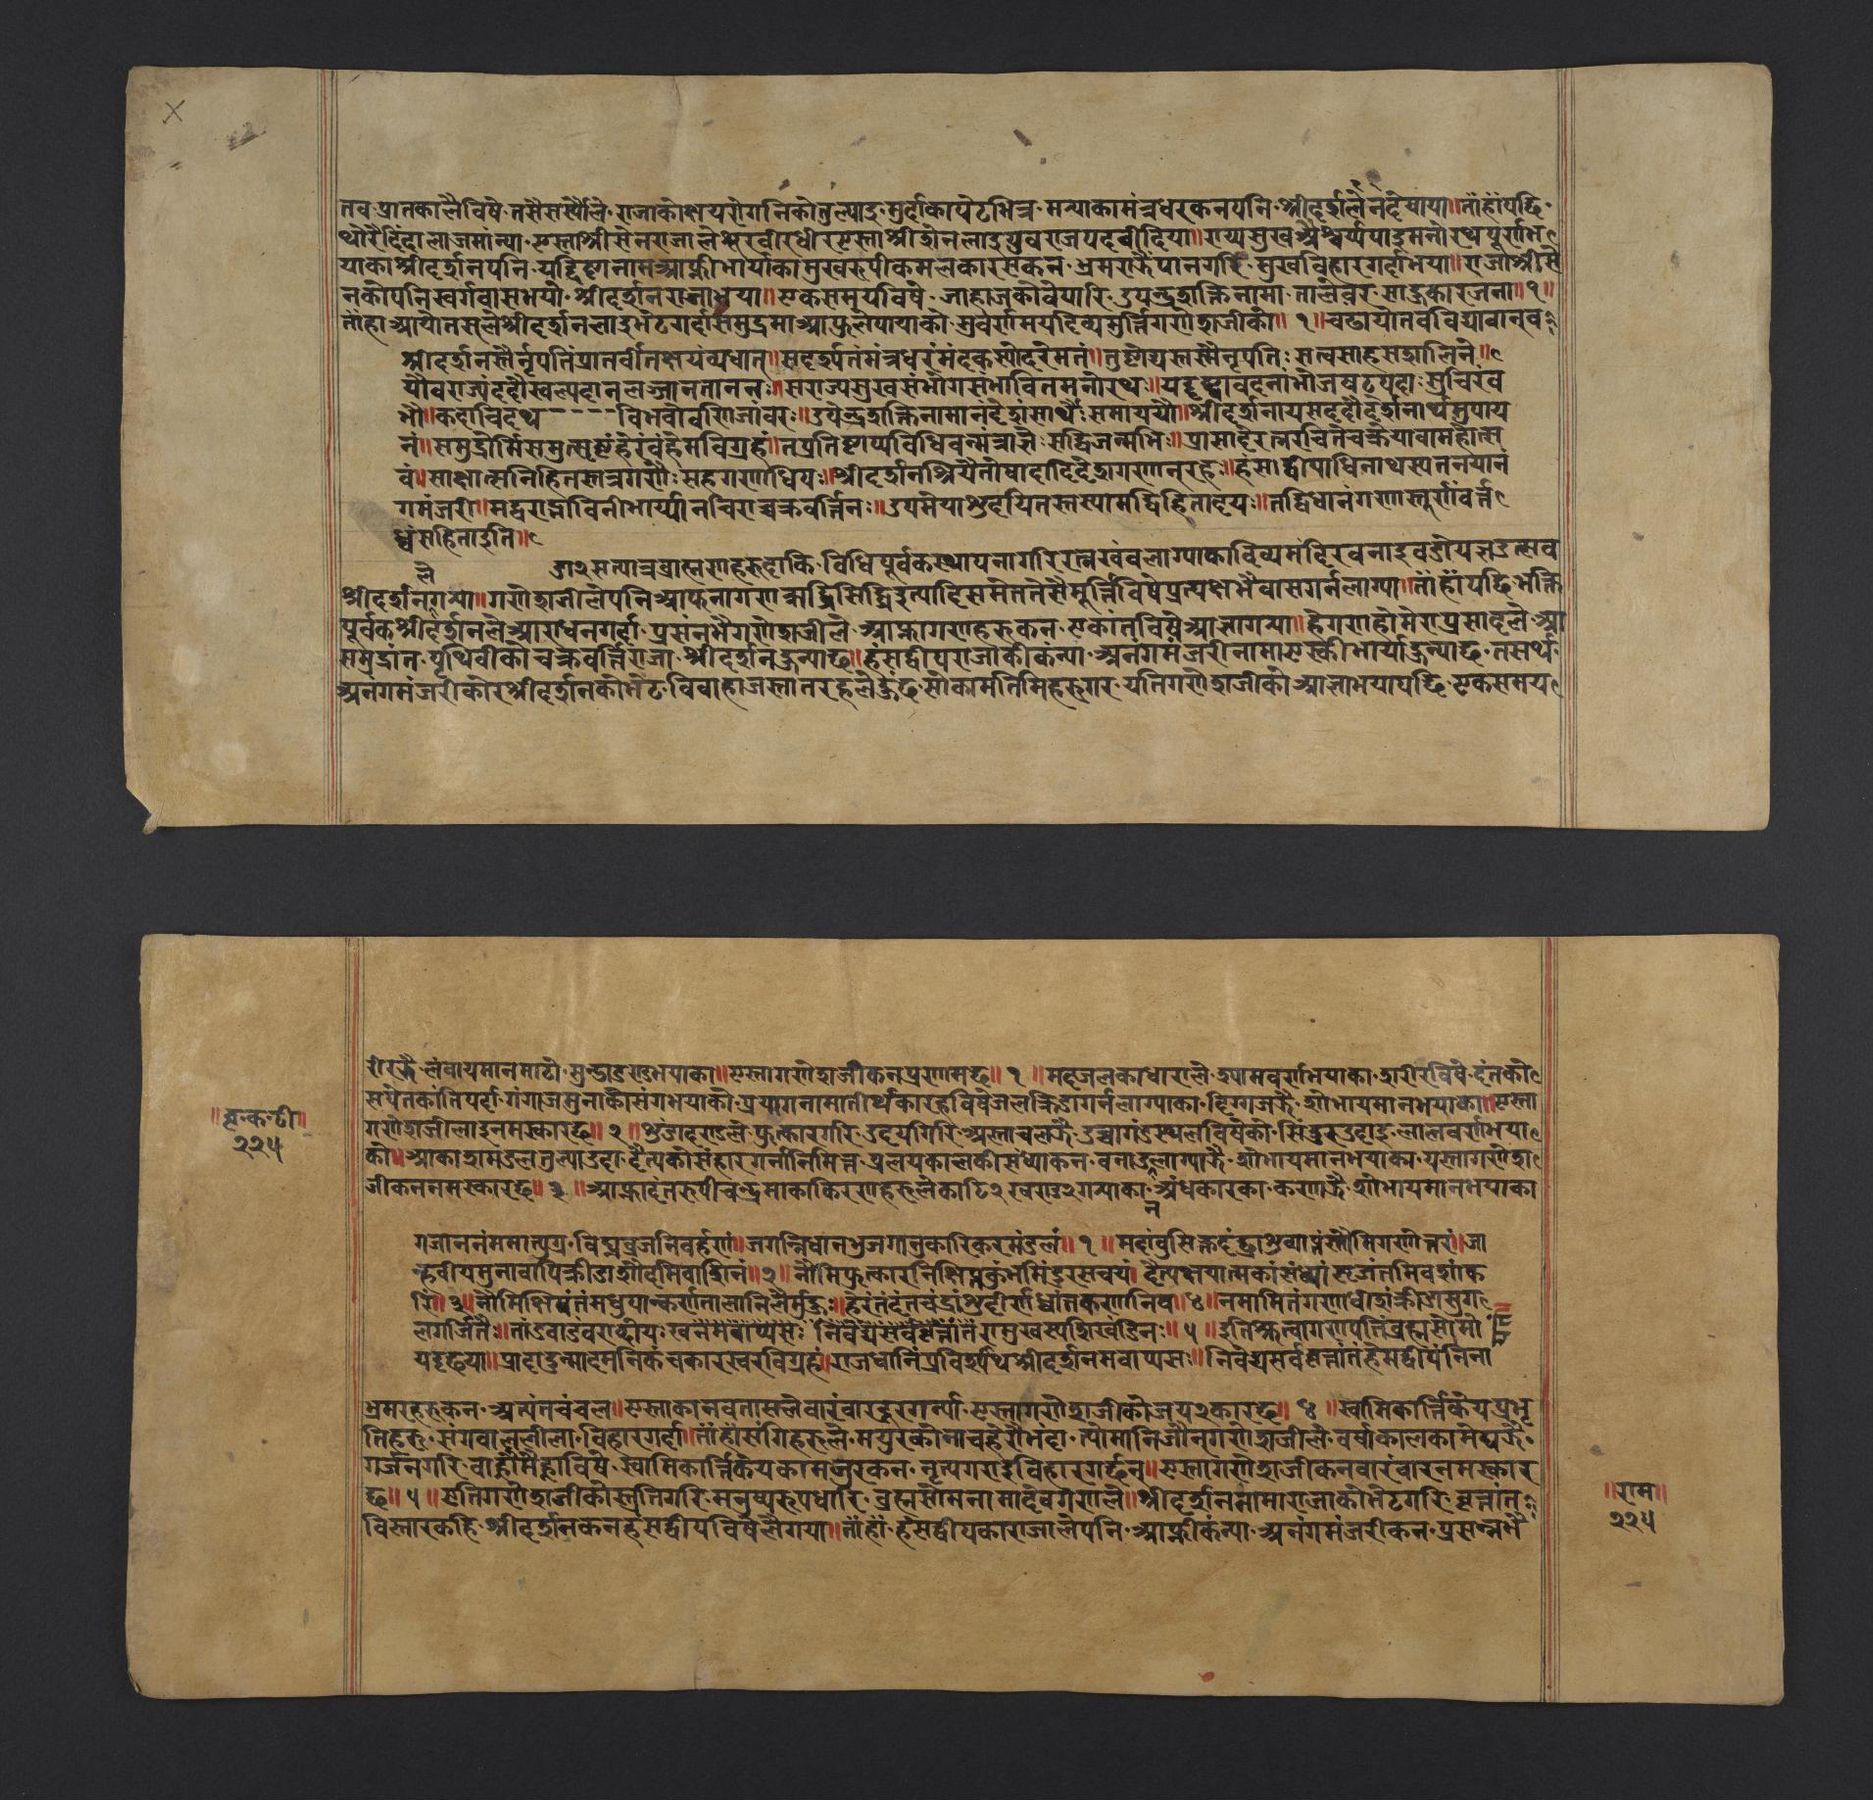 तव प्रातकालैविषे तसैसर्प्पैले राजाकोक्षयरोगनिकोतुल्याइ मुर्दाकापेटभित्र मन्याकामंत्रधरकनपनि श्रीदर्शनले नदेषाया॥ ताँहाँपछि
थोरैदिंदालाजमांन्या एस्ताश्रीसेनराजालेभरवीरधीरएस्ताश्रीदर्शनलाइयुवराजपदवीदिया॥ राज्यसुखऐश्वर्यपाइमनोरथपूर्णभ
याकाश्रीदर्शनपनि यद्दिष्टानामआफ्नीभार्याकामुखरुपीकमलकारसकन भ्रमरझैपानगरि सुखविहारगर्दाभया॥ राजाश्रीसे
नकोपनिस्वर्गवासभयो श्रीदर्शनराजाभया॥ एकसमयविषे जाहाजकोवेपारि उपेन्द्रशक्तिनामा तालेवर साहुकारजना॥१॥
ताँहाआयोतसलेश्रीदर्शनलाइभेटगर्दासमुद्रमाआफुलेपायाको सुवर्णमयदिव्यमुर्त्तिगणेशजीको॥१॥
श्रीदर्शनस्तैर्नृपतिंप्रातर्वीतक्षयंव्यधात्॥ सददर्शपतंमंत्रधरंमंदकस्योदरेमतं॥ तुष्टोयस्तस्मैनृपतिः सत्वसाहसशालिने॥
यौवराज्यंददौस्वल्पदानलज्जानताननः॥ सराज्यसुखसंभोगसंभावितमनोरथः॥ यद्दृष्ट्वावदनांभोजषट्पदः सुचिरंव
भौ॥ कदाचिदथ - - - - विभवोवणिजांवरः॥ उपेन्द्रशक्तिनामानंदेशंसार्थैः समाययौ॥ श्रीदर्शनायसददौदर्शनार्थमुपाय
नं॥ समुद्रोर्मिसमुत्सृष्टंहेरंवंहेमविग्रहं॥ तंप्रतिष्टाप्यविधिवन्मंत्रज्ञैः सद्विजन्मभिः॥ प्रासादेरत्नरचितेचक्रेयात्रामहोत्स
वं॥ साक्षात्सनिहितस्तत्रगणैः सहगणाधिपः॥ श्रीदर्शनश्रियैतोषादादिदेशगणान्रहः॥ हंसाद्वीपाधिनाथस्यतनयान
गमंजरी॥ मद्वराद्भाविनीभार्य्यानचिराच्चक्रवर्त्तिनः॥
ध्वंसहिताइति॥
उा२सत्पात्रब्राह्मणहरुदाकि विधिपूर्वकस्थापनागरिरत्नखंवलाग्याकादिव्यमंदिरवनाइवडोयज्ञउत्सव
श्रीदर्शनलेगऱ्या॥ गणेशजीलेपनिआफ्नागणऋद्धिसिद्धिइत्यादिसमेततेसैमूर्त्तिविषेप्रत्यक्षभैवासगर्नलाग्या॥ ताँहाँपछि भक्ति
पूर्वकश्रीदर्शनलेआराधनगर्दा प्रसंनभैगणेशजीले आफ्नागणहरुकन एकांतविषेआज्ञागऱ्या॥ हेगणहोमेराप्रसादले आ
समुद्रांत पृथिवीको चक्रवर्त्तिराजा श्रीदर्शनहुन्याछ॥ हंसद्वीपराजाकीकन्या अनंगमंजरीनामाएस्कीभार्याहुन्याछ तसर्थ
अनंगमंजरीकोरश्रीदर्शनकोभेट विवाहाजस्तातरहलेहुंछ सोकामतिमिहरुगर यतिगणेशजीको आज्ञाभयापछि एकसमय
॥बृ॰क॰टी॥
२२५
शेरझै लंवायमानमाटो मुन्डाउएकभयाका॥ एस्तागणेशजीकनप्रणामछ॥१॥ मदजलकाधाराले श्यामवर्णभयाका शरीरविषे दंतको
सपेतकांतिपर्दा गंगाजमुनाकोसंगभयाको प्रयागनामातीर्थकारहविषेजलक्रिडागर्नलाग्याका दिग्गजझै शोभायमानभयाका॥ एस्ता
गणेशजीलाइनमस्कारछ॥२॥ शुंडादण्डले फुत्कारगरि उदयगिरि अस्ताचलझै उच्चागंडस्थलविषेको सिंदुरउडाइ लालवर्णभया
को॥ आकाशमंडलतुल्याउदा दैत्यकोसंहारगर्नानिमित्त प्रलयकालकीसंध्याकन वनाउनलाग्याझै शोभायमानभयाका यस्तागणेश
जीकनमस्कारछ॥३॥ आफ्नादंतरुपीचन्द्रमाकाकिरणहरुलेकाटि२खण्ड२गऱ्याका अंधकारका कणझै शोभायमानभयाका
गजाननंममात्युग्र विघ्नव्रजनिवर्हणं॥ जगन्निधानभुजगानुकारिकरमंडलं॥१॥ मदांवुसिक्तदंष्ट्राशुव्याप्तंस्तौमिगणेत्तरं॥ जा
न्हवीयमुनावापिक्रीडाशीदमिवाशिनं॥२॥ नौमिफुत्कारनिक्षिप्तकुंभसिंदुरसंचयं॥ दैत्यक्षयात्मकांसंध्यांसृजंतमिवशांक
रिं॥३॥ नौमिक्षिपंतंमधुपान्कर्णतालानिलैर्मुहुः॥ हरंतंदंतचंद्रांशुदीर्णध्वांतकणानिव॥४॥ नमामितंगणाधीशंक्रीडासुग
लगर्जितैः॥
यदृछया॥ प्रादादुन्मादमनिकंचकारस्वरविग्रहां॥ राजधानिंप्रविश्याथश्रीदर्शनमवाप्यसः॥ निवेद्यसर्ववृत्तांतंहंसद्वीपंनिना
भ्रमरहरुकन अत्यंतचंचल॥ एस्ताकानवतासलेवारंवारदुरगर्न्या एस्तागणेशजीकोजय२कारछ॥४॥ स्वामिकार्त्तिकेयप्रभृ
तिहरु संगवालेलीला विहारगर्दा॥ ताँहाँसंगिहरुले मयुरकोनाचहेरौंभंदा त्योमानिऔन्गणेशजीले वर्षाकालकामेघझै
गर्जनगरि वाहांमैहाविषे स्वामिकार्त्तिकेयकामजुरकन नृत्यगराइविहारगर्छन्॥ एस्तागणेशजीकनवारंवारनमस्कार
छ॥५॥ एतिगणेशजीकोस्तुतिगरि मनुष्यरुपधारि ब्रह्मसोमनामादेवगणले॥ श्रीदर्शननामाराजाकोभेटगरि वृत्तांत
विस्तारकहि श्रीदर्शनकनहंसद्वीपविषेलैगया॥ ताँहाँ हंसद्वीपकाराजालेपनि आफ्नीकन्या अनंगमंजरीकन प्रसन्नभै
॥राम॥
२२५